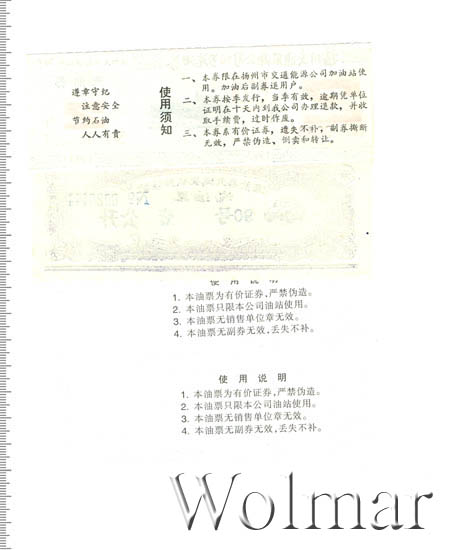 遵章守纪
注意安全
节约石油
人人有责
使用须知
一、本券限在扬州市交通能源公司加油站使
用。加油后副券还用户。
二、本券按季发行，当季有效，逾期凭单位
证明在十天内到我公司办理退款，并收
取手续费，过时作废。
三、本券系有价证券，遗失不补，副券撕断
无效，严禁伪造、倒卖和转让。
使用说明
1. 本油票为有价证券，严禁伪造。
2. 本油票只限本公司油站使用。
3. 本油票无销售单位章无效。
4. 本油票无副券无效，丢失不补。
使用说明
1. 本油票为有价证券，严禁伪造。
2. 本油票只限本公司油站使用。
3. 本油票无销售单位章无效。
4. 本油票无副券无效，丢失不补。
Wolmar